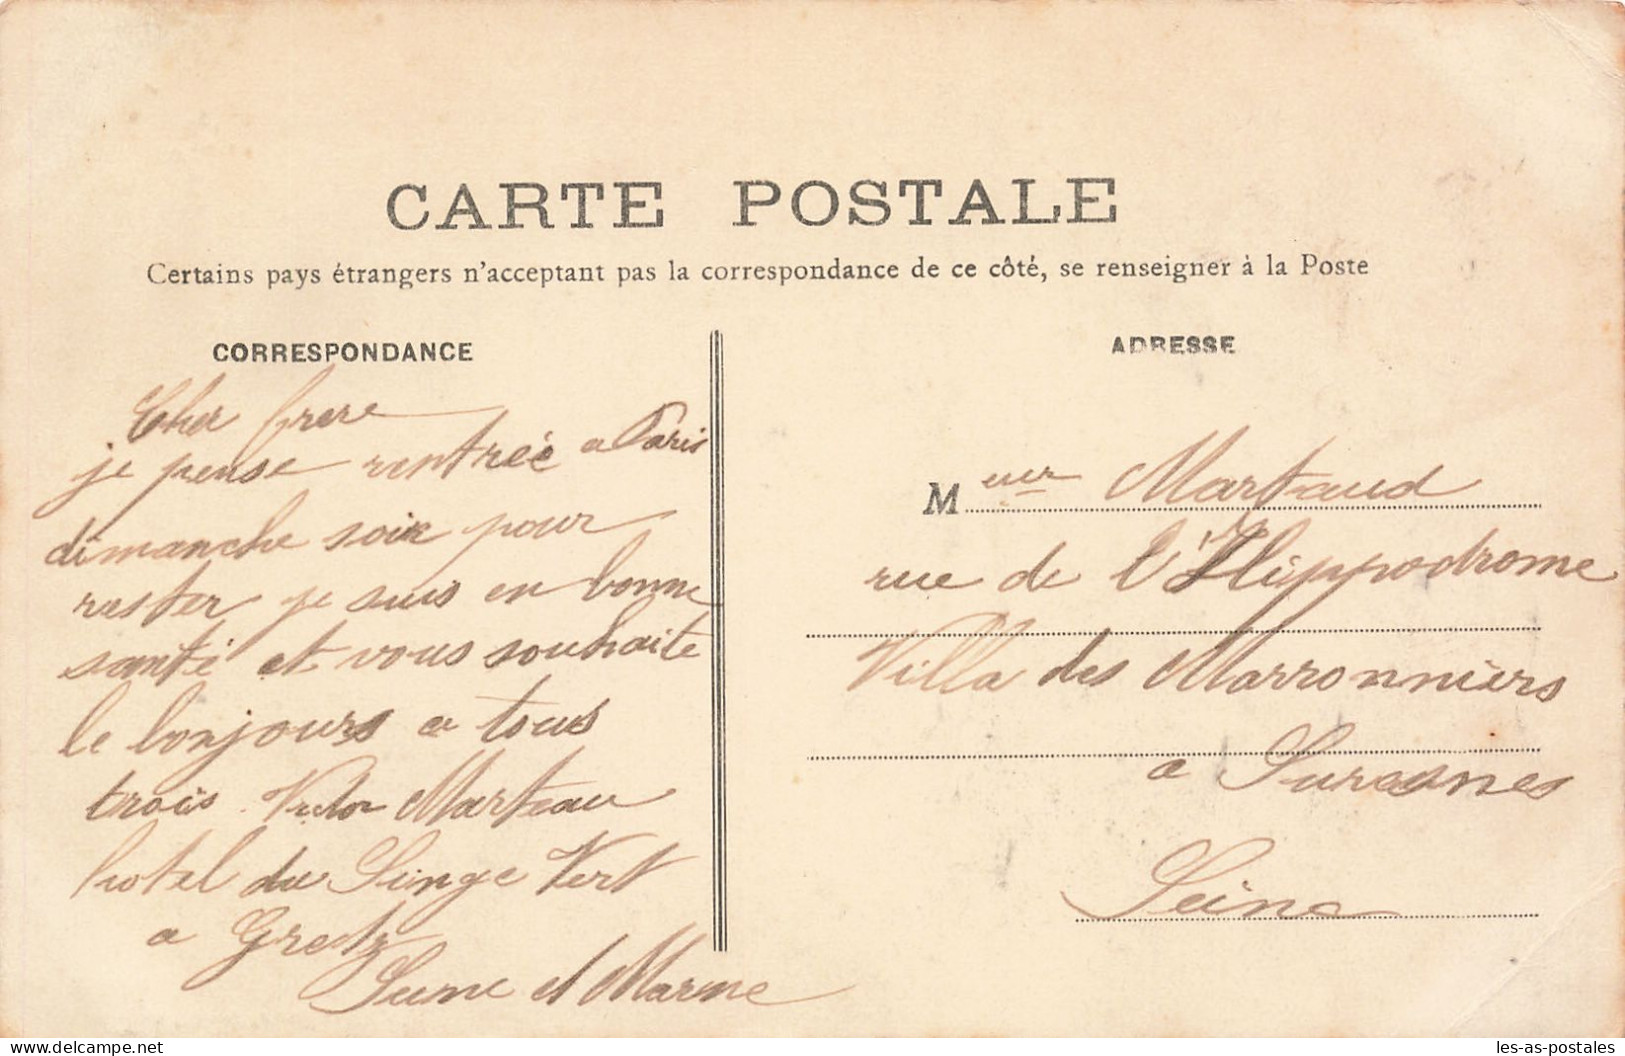 CARTE POSTALE
Certains pays étrangers n'acceptant pas la correspondance de ce côté, se renseigner à la Poste
CORRESPONDANCE
Cher frere
je pense rentrée a Paris
dimanche soir pour
rester je suis en bonne
santé et vous souhaite
le bonjours a tous
trois. Victor Marteau
hotel du Singe Vert
a Gretz
Seine et Marne
ADRESSE
Meur Martaud
rue de l'Hippodrome
Villa des Marronniers
a Suresnes
Seine
www.delcampe.net
les-as-postales